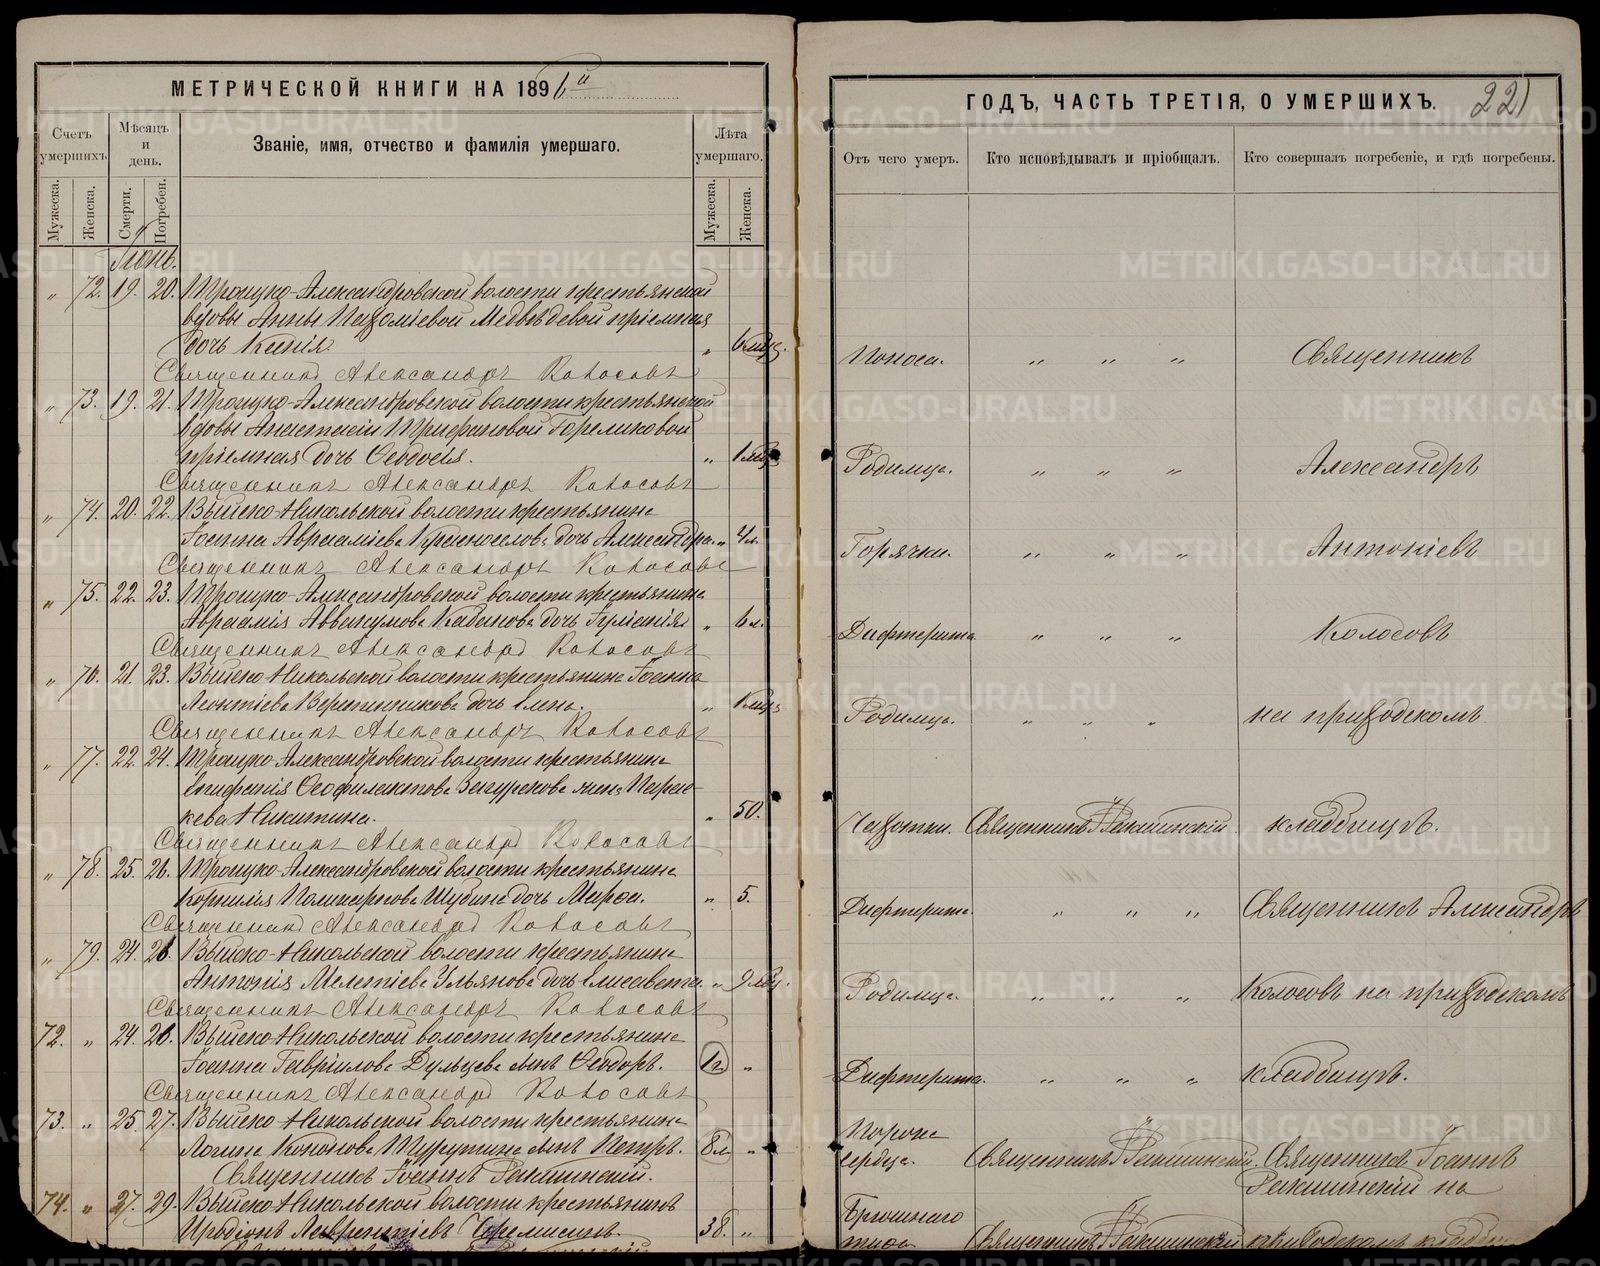 МЕТРИЧЕСКОЙ КНИГИ НА 1896й
Счетъ умершихъ.
Мѣсяцъ и день.
Званіе, имя, отчество и фамилія умершаго.
Лѣта умершаго.
Мужеска.
Женска.
Смерти.
Погребен.
Мужеска.
Женска.
Іюнь.
" 72. 19. 20. Троицко-Александровской волости крестьянской
вдовы Анны Пахоміевой Медвѣдевой пріемная
дочь Ксенія. "
Священникъ Александръ Колосовъ
" 73. 19. 21. Троицко-Александровской волости крестьянской
вдовы Анастасіи Трифоновой Гореликовой
пріемная дочь Ѳеодосія. "
Священникъ Александръ Колосовъ
" 74. 20. 22. Выйско-Никольской волости крестьянина
Іоанна Авраамієва Красноселова дочь Александра. " 4 л.
Священникъ Александръ Колосовъ
" 75. 22. 23. Троицко-Александровской волости крестьянина
Авраамія Аввакумова дочь "
Священникъ Александръ Колосовъ
" 76. 21. 23. Выйско-Никольской волости крестьянина Іоанна
Леонтіева Веретенникова дочь Елена. "
Священникъ Александръ Колосовъ
" 77. 22. 24. Троицко-Александровской волости крестьянина
Епифанія Ѳеофилактова жена Параскева
Никитина. " 50.
Священникъ Александръ Колосовъ
" 78. 25. 26. Троицко-Александровской волости крестьянина
Корнилія Поликарпова Шубина дочь " 5.
Священникъ Александръ Колосовъ
" 79. 24. 26. Выйско-Никольской волости крестьянина
Антонія Мелетіева Ульянова дочь Елисавета. "
Священникъ Александръ Колосовъ
72. " 24. 26. Выйско-Никольской волости крестьянина
Іоанна Гавріилова Дульцева сынъ Ѳеодоръ. 1 г. "
Священникъ Александръ Колосовъ
73. " 25. 27. Выйско-Никольской волости крестьянина
Логина Кононова сынъ Петръ. "
Священникъ Іоаннъ
74. " 27. 29. Выйско-Никольской волости крестьянинъ
Иродіонъ Лаврентіевъ Черемисинъ. 38. "
ГОДЪ, ЧАСТЬ ТРЕТІЯ, О УМЕРШИХЪ.
221
Отъ чего умеръ.
Кто исповѣдывалъ и пріобщалъ.
Кто совершалъ погребеніе, и гдѣ погребены.
Поноса. " " " Священникъ
Родимца. " " " Александръ
Горячки. " " " Антоніевъ
Дифтерита " " " Колосовъ
Родимца. " " " на приходскомъ
Чахотки. Священникъ кладбищѣ.
Дифтерита. " " " Священникъ Александръ
Родимца. " " " Колосовъ на приходскомъ
Дифтерита. " " " кладбищѣ.
Порока
сердца. Священникъ Священникъ Іоаннъ
на
Брюшного
тифа Священникъ приходскомъ
METRIKI.GASO-URAL.RU